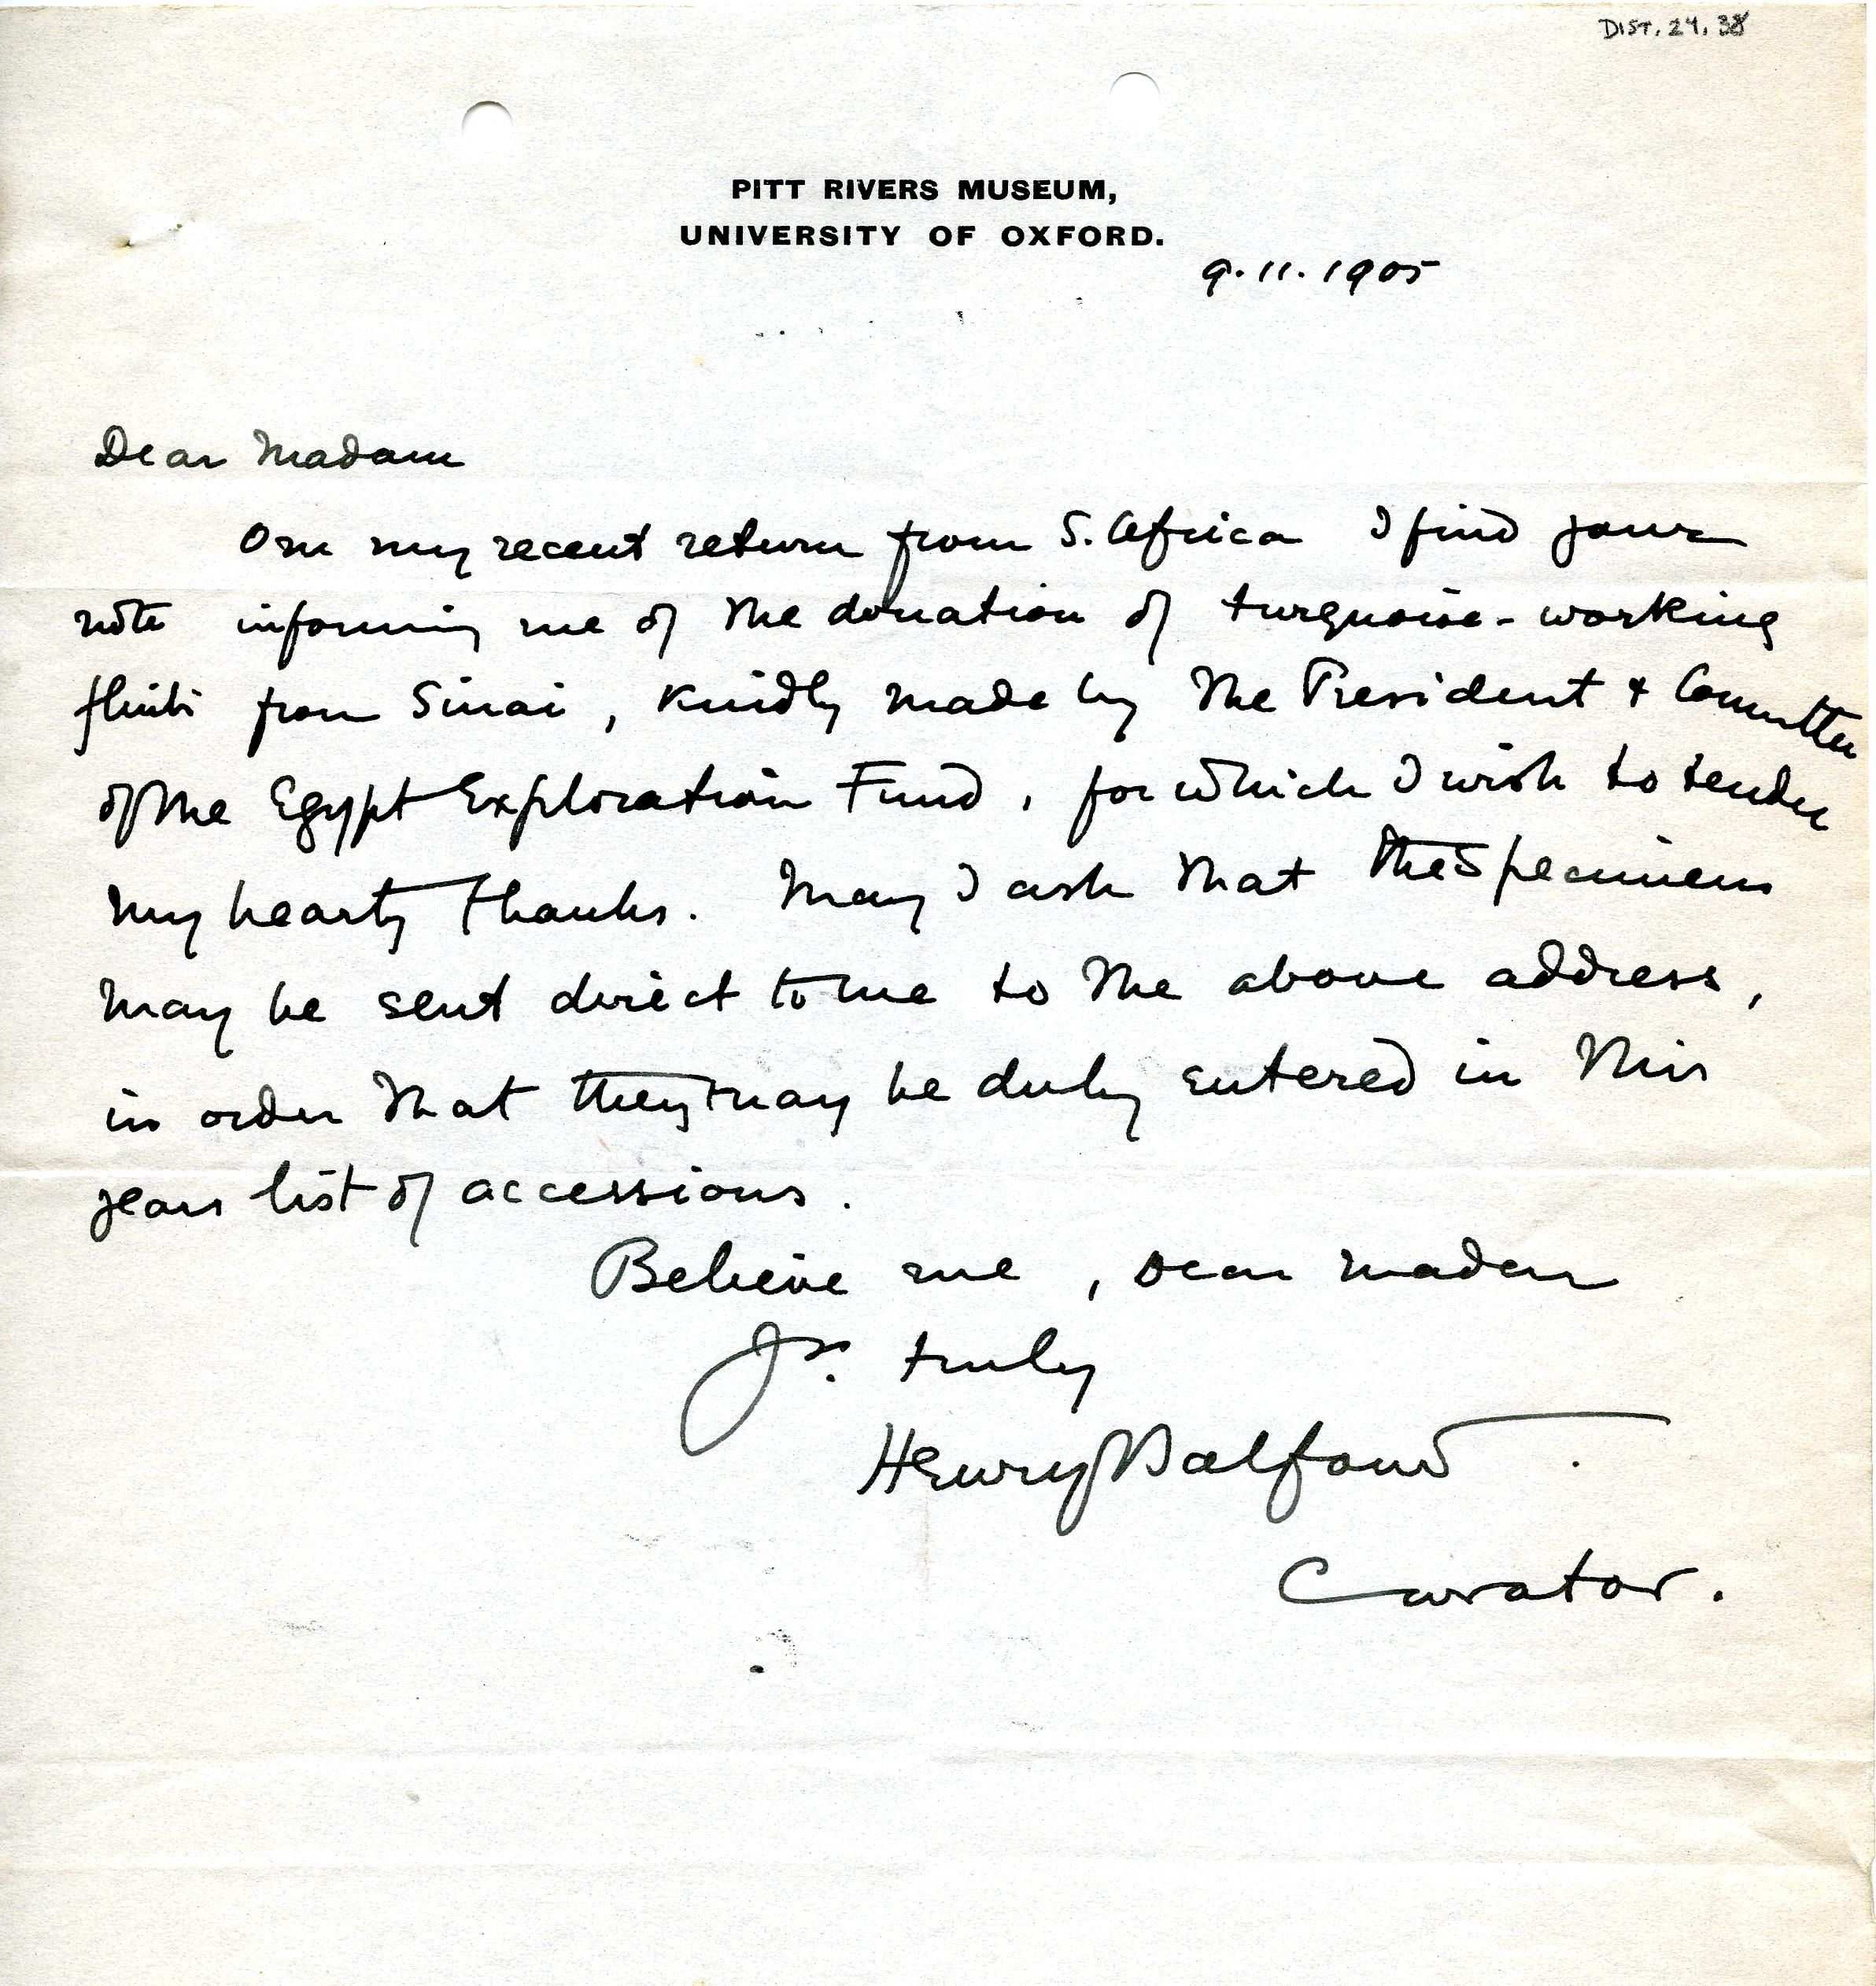 DIST. 24. 38
PITT RIVERS MUSEUM,
UNIVERSITY OF OXFORD.
9.11.1905
Dear Madam
On my recent return from S. Africa I find your
note informing me of the donation of turquoise-working
flints from Sinai, kindly made by the President & Committee
of the Egypt Exploration Fund, for which I wish to tender
my hearty thanks. May I ask that the specimens
may be sent direct to me to the above address,
in order that they may be duly entered in this
years list of accessions.
Believe me, Dear Madam
Yrs. truly
Henry Balfour.
Curator.